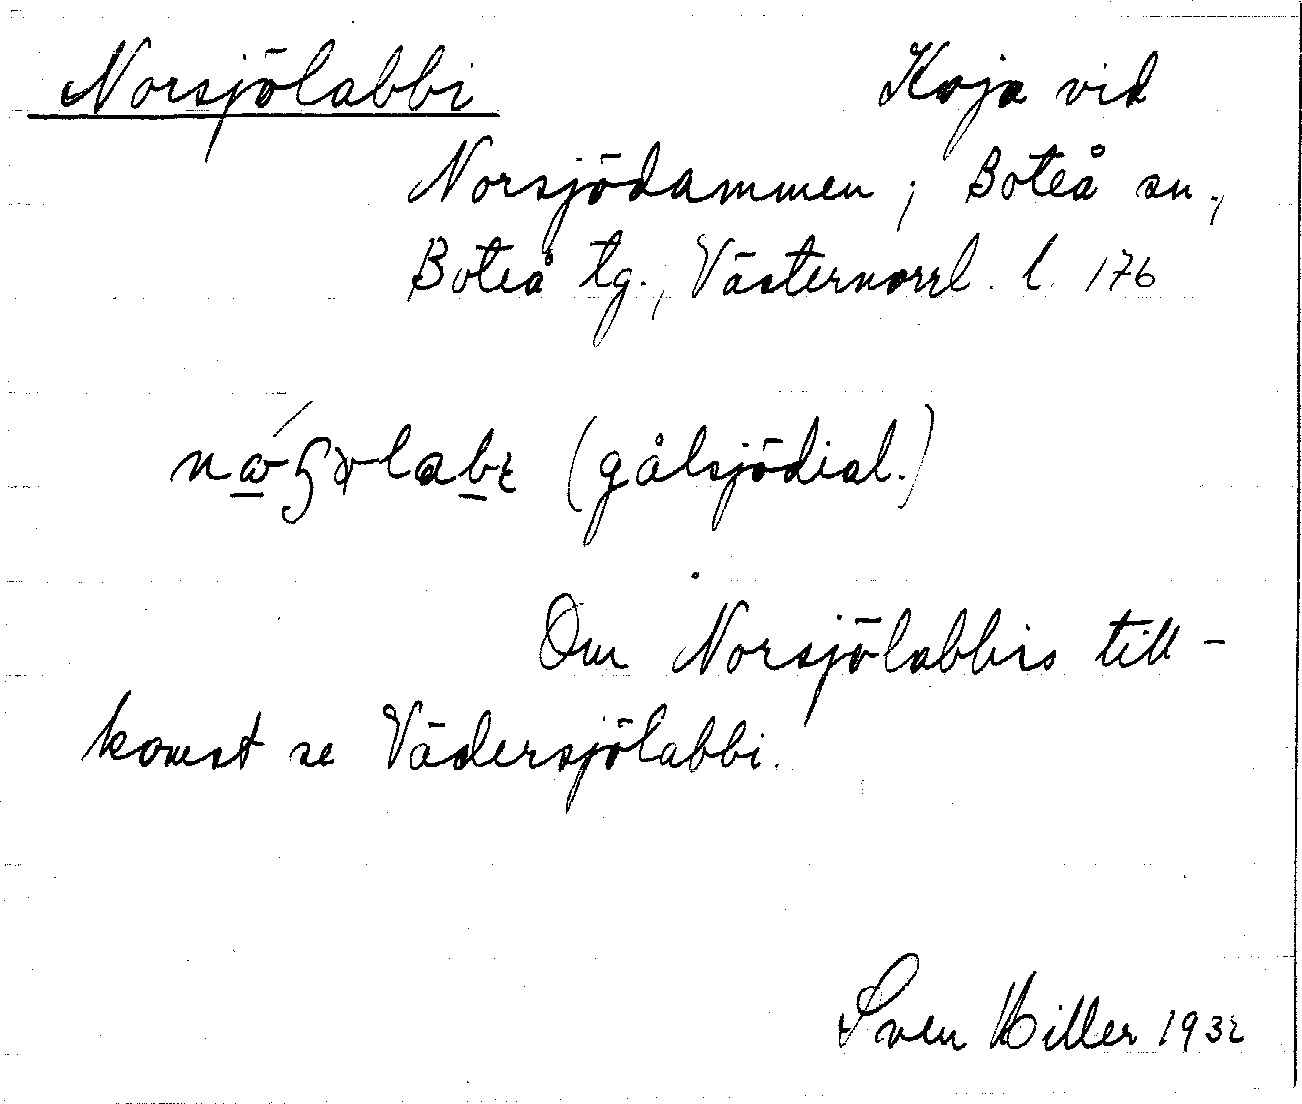 Norsjölabbi Koja vid
Norsjödammen, Boteå sn.,
Boteå tg., Västernorrl. l. 176
(gålsjödial.)
Om Norsjölabbis till-
komst se Vädersjölabbi.
Sven Hiller 1932